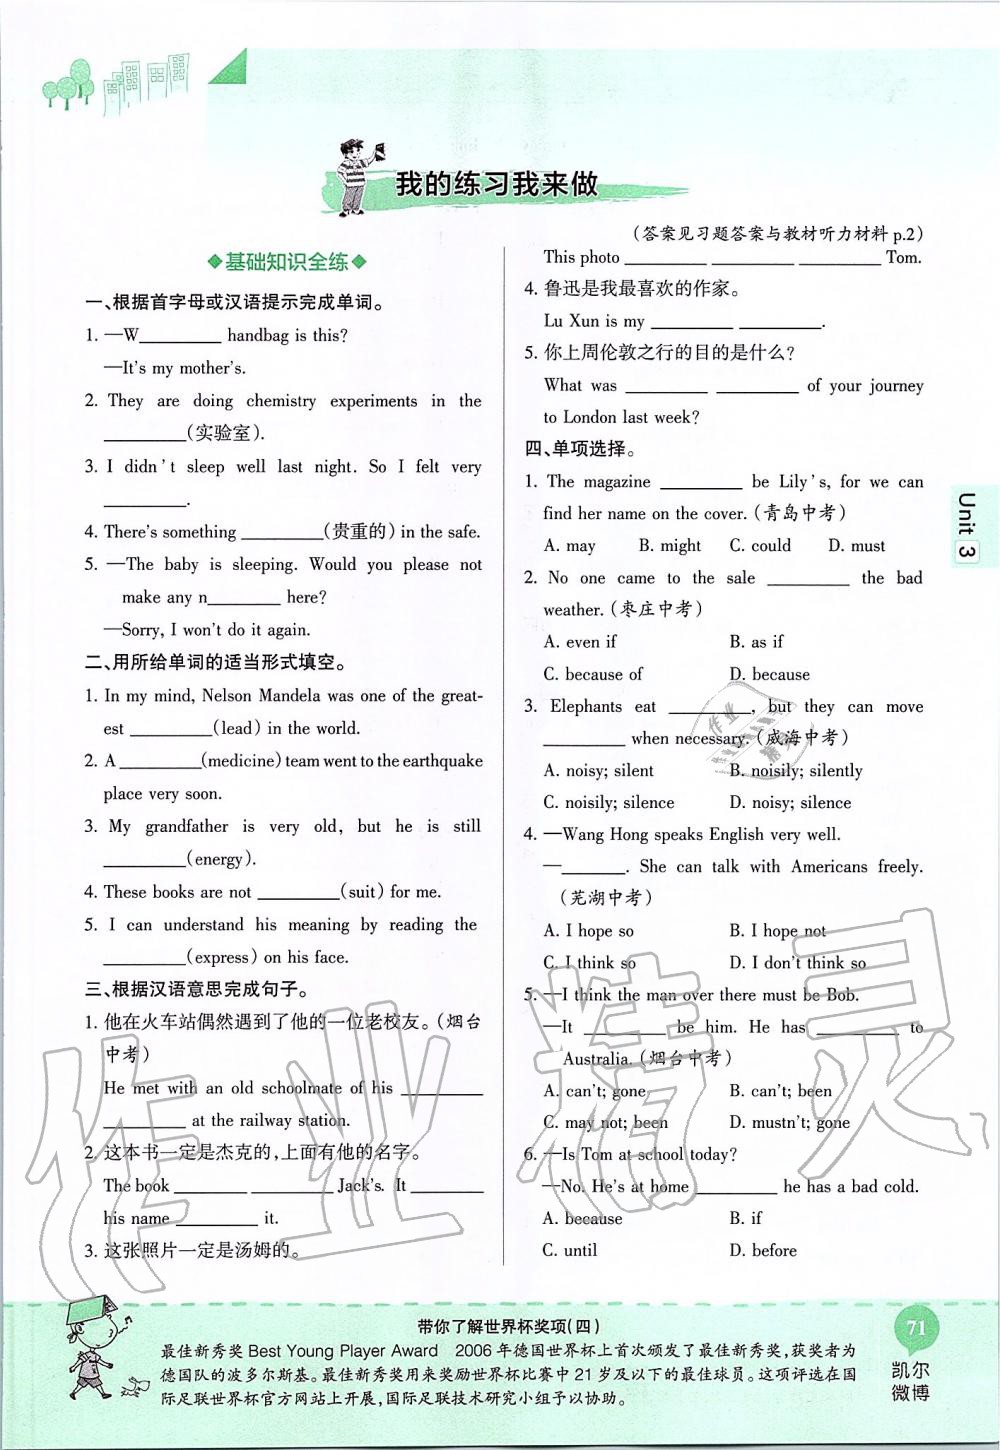 我的练习我来做
(答案见习题答案与教材听力材料 p.2)
◆基础知识全练◆
一、根据首字母或汉语提示完成单词。
1. —W________ handbag is this?
—It's my mother's.
2. They are doing chemistry experiments in the
________(实验室).
3. I didn't sleep well last night. So I felt very
________.
4. There's something ________(贵重的) in the safe.
5. —The baby is sleeping. Would you please not
make any n________ here?
—Sorry, I won't do it again.
二、用所给单词的适当形式填空。
1. In my mind, Nelson Mandela was one of the great-
est ________(lead) in the world.
2. A ________(medicine) team went to the earthquake
place very soon.
3. My grandfather is very old, but he is still
________(energy).
4. These books are not ________(suit) for me.
5. I can understand his meaning by reading the
________(express) on his face.
三、根据汉语意思完成句子。
1. 他在火车站偶然遇到了他的一位老校友。(烟台
中考)
He met with an old schoolmate of his ________
________ at the railway station.
2. 这本书一定是杰克的,上面有他的名字。
The book ________ ________ Jack's. It ________
his name ________ it.
3. 这张照片一定是汤姆的。
This photo ________ ________ ________ Tom.
4. 鲁迅是我最喜欢的作家。
Lu Xun is my ________ ________.
5. 你上周伦敦之行的目的是什么?
What was ________ ________ of your journey
to London last week?
四、单项选择。
1. The magazine ________ be Lily's, for we can
find her name on the cover. (青岛中考)
A. may B. might C. could D. must
2. No one came to the sale ________ the bad
weather. (枣庄中考)
A. even if B. as if
C. because of D. because
3. Elephants eat ________, but they can move
________ when necessary. (威海中考)
A. noisy; silent B. noisily; silently
C. noisily; silence D. noisy; silence
4. —Wang Hong speaks English very well.
—________. She can talk with Americans freely.
(芜湖中考)
A. I hope so B. I hope not
C. I think so D. I don't think so
5. —I think the man over there must be Bob.
—It ________ be him. He has ________ to
Australia. (烟台中考)
A. can't; gone B. can't; been
C. may not; been D. mustn't; gone
6. —Is Tom at school today?
—No. He's at home ________ he has a bad cold.
A. because B. if
C. until D. before
Unit 3
作业精灵
带你了解世界杯奖项(四)
最佳新秀奖 Best Young Player Award 2006 年德国世界杯上首次颁发了最佳新秀奖,获奖者为
德国队的波多尔斯基。最佳新秀奖用来奖励世界杯比赛中 21 岁及以下的最佳球员。这项评选在国
际足联世界杯官方网站上开展,国际足联技术研究小组予以协助。
71
凯尔
微博